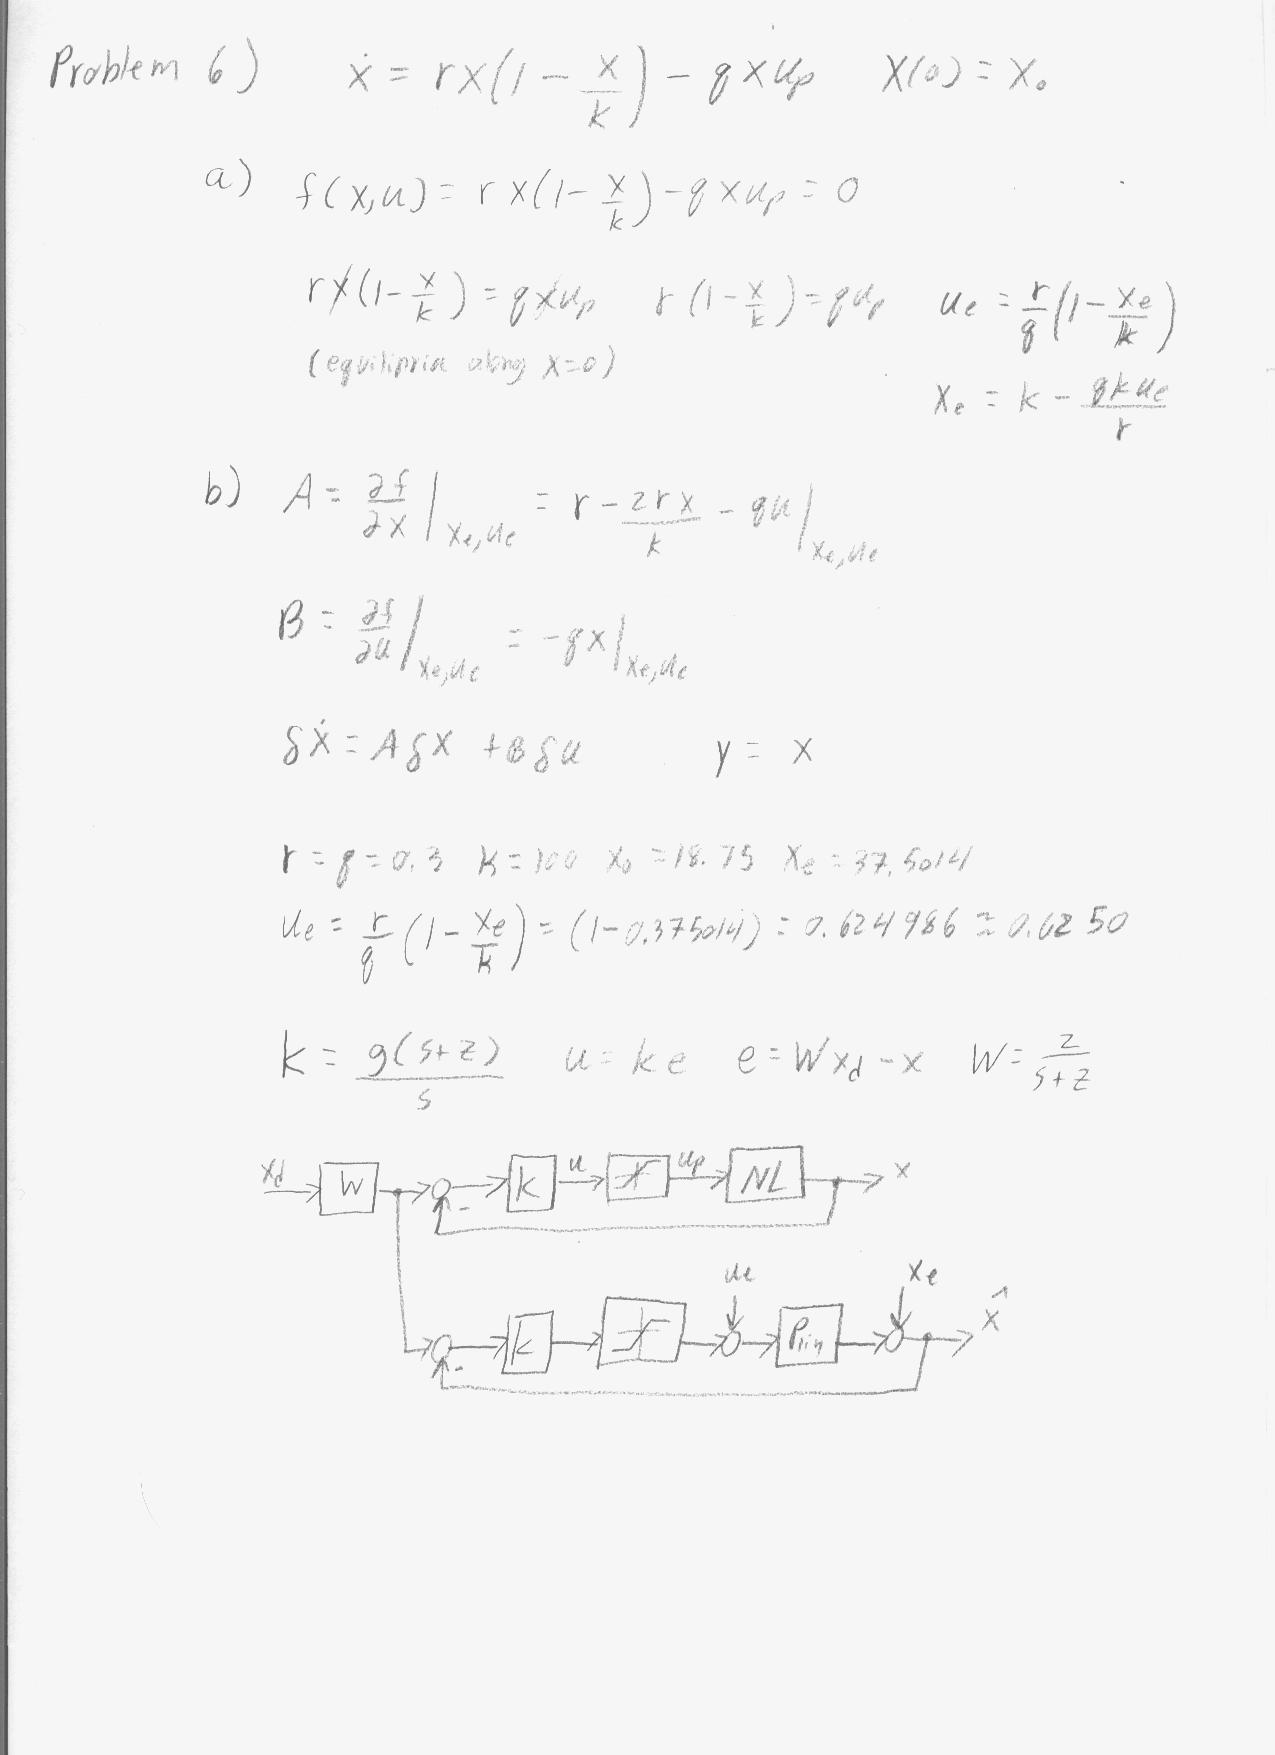 Problem 6) ẋ = rx(1 - x/k) - qxu_p X(0) = X_0
a) f(x,u) = rx(1 - x/k) - qxu_p = 0
rx(1 - x/k) = qxu_p r(1 - x/k) = qu_p u_e = r/q(1 - x_e/k)
(equilipria along x=0) x_e = k - qku_e/r
b) A = ∂f/∂x |x_e,u_e = r - 2rx/k - qu |x_e,u_e
B = ∂f/∂u |x_e,u_e = -qx |x_e,u_e
δẋ = Aδx + Bδu y = x
r = q = 0.3 k = 100 x_0 = 18.75 x_e = 37.5014
u_e = r/q (1 - x_e/k) = (1 - 0.375014) = 0.624986 ≈ 0.6250
k = g(s+z)/s u = ke e = Wx_d - x W = z/(s+z)
x_d W - k u u_p NL x
u_e x_e x̂
- k P_lin